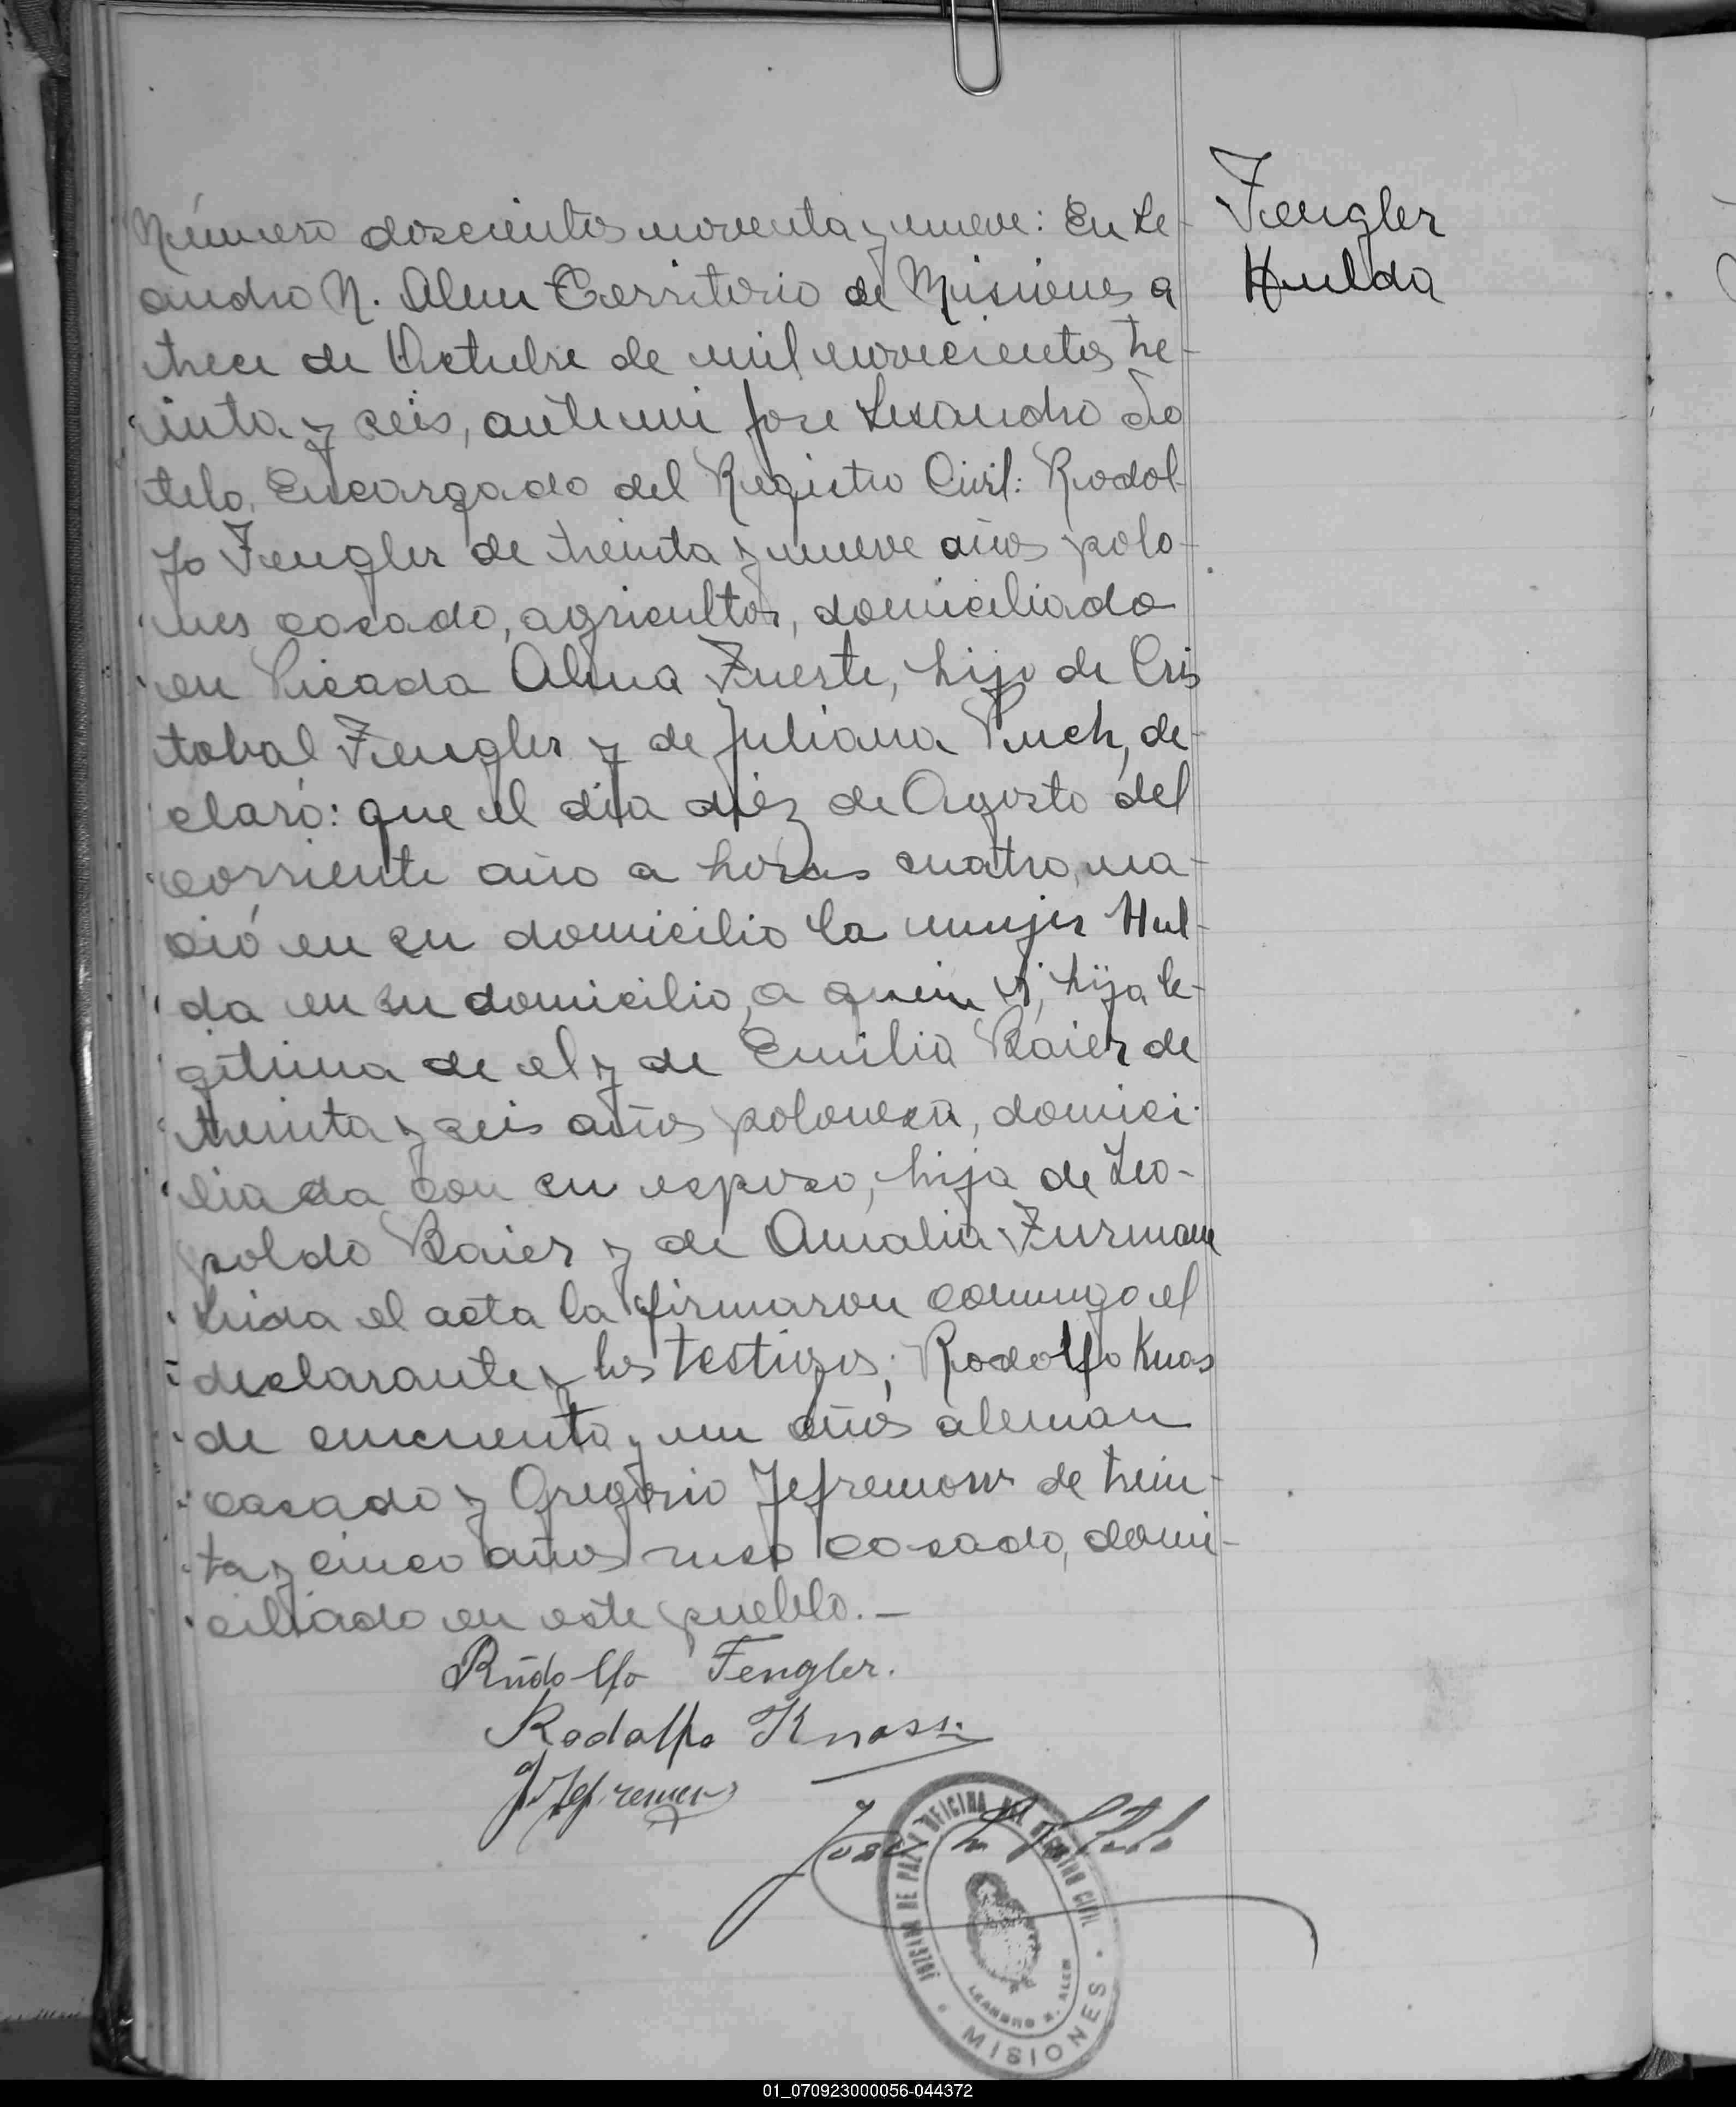 Número doscientos noventa y nueve: En Le-
andro N. Alem Territorio de Misiones a
trece de Octubre de mil novecientos tre-
inta y seis, ante mi Jose Lisandro So
telo, Encargado del Registro Civil: Rodol-
fo Fengler de treinta y nueve años polo-
nes casado, agricultor, domiciliado
en Picada Alma Fuerte, hijo de Cris
tobal Fengler y de Juliana Puch, de-
claró: que el día diéz de Agosto del
corriente año a horas cuatro, na-
ció en su domicilio la mujer Hul-
da en su domicilio, a quien ví, hija le-
gítima de el y de Emilia Raier de
treinta y seis años polonesa, domici-
liada con su esposo, hija de Leo-
poldo Raier y de Amalia Furmann
Leida el acta la firmaron conmigo el
declarante y los testigos; Rodolfo Knas
de cincuenta y un años aleman
casado y Gregorio Jefremow de trein-
ta y cinco años ruso casado, domi-
ciliado en este pueblo.—
Fengler
Hulda
Rudolfo Fengler.
Rodolfo Knass.
Jefremow
Jose
JUZGADO DE PAZ Y OFICINA DEL REGISTRO CIVIL
LEANDRO N. ALEM
MISIONES
01_070923000056-044372